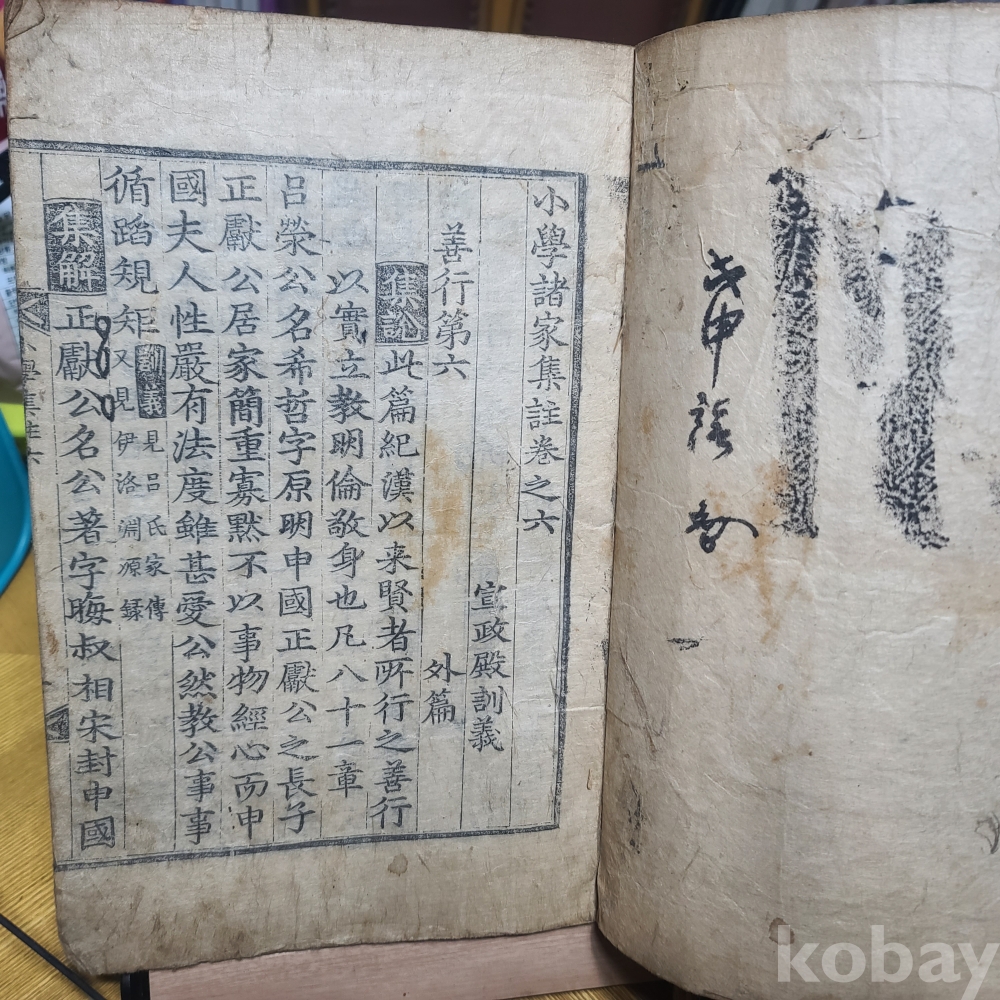 小學諸家集註卷之六
宣政殿訓義
善行第六 外篇
集說 此篇紀漢以来賢者所行之善行
以實立教明倫敬身也凡八十一章
呂榮公名希哲字原明申國正獻公之長子
正獻公居家簡重寡默不以事物經心而申
國夫人性嚴有法度雖甚愛公然教公事事
循蹈規矩 訓義 見呂氏家傳
又見伊洛淵源錄
集解 正獻公名公著字晦叔相宋封申國
kobay